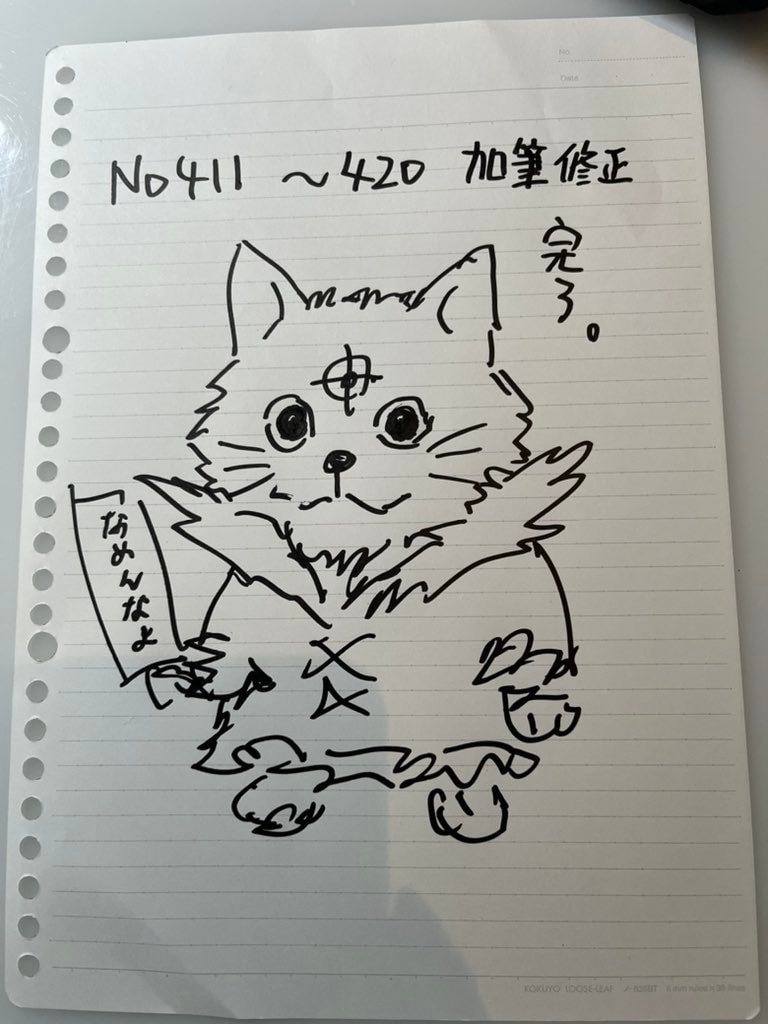 No.
Date
No 411 ～420 加筆修正
完了。
なめんなよ
KOKUYO LOOSE-LEAF ノ-836BT 6 mm ruled × 36 lines